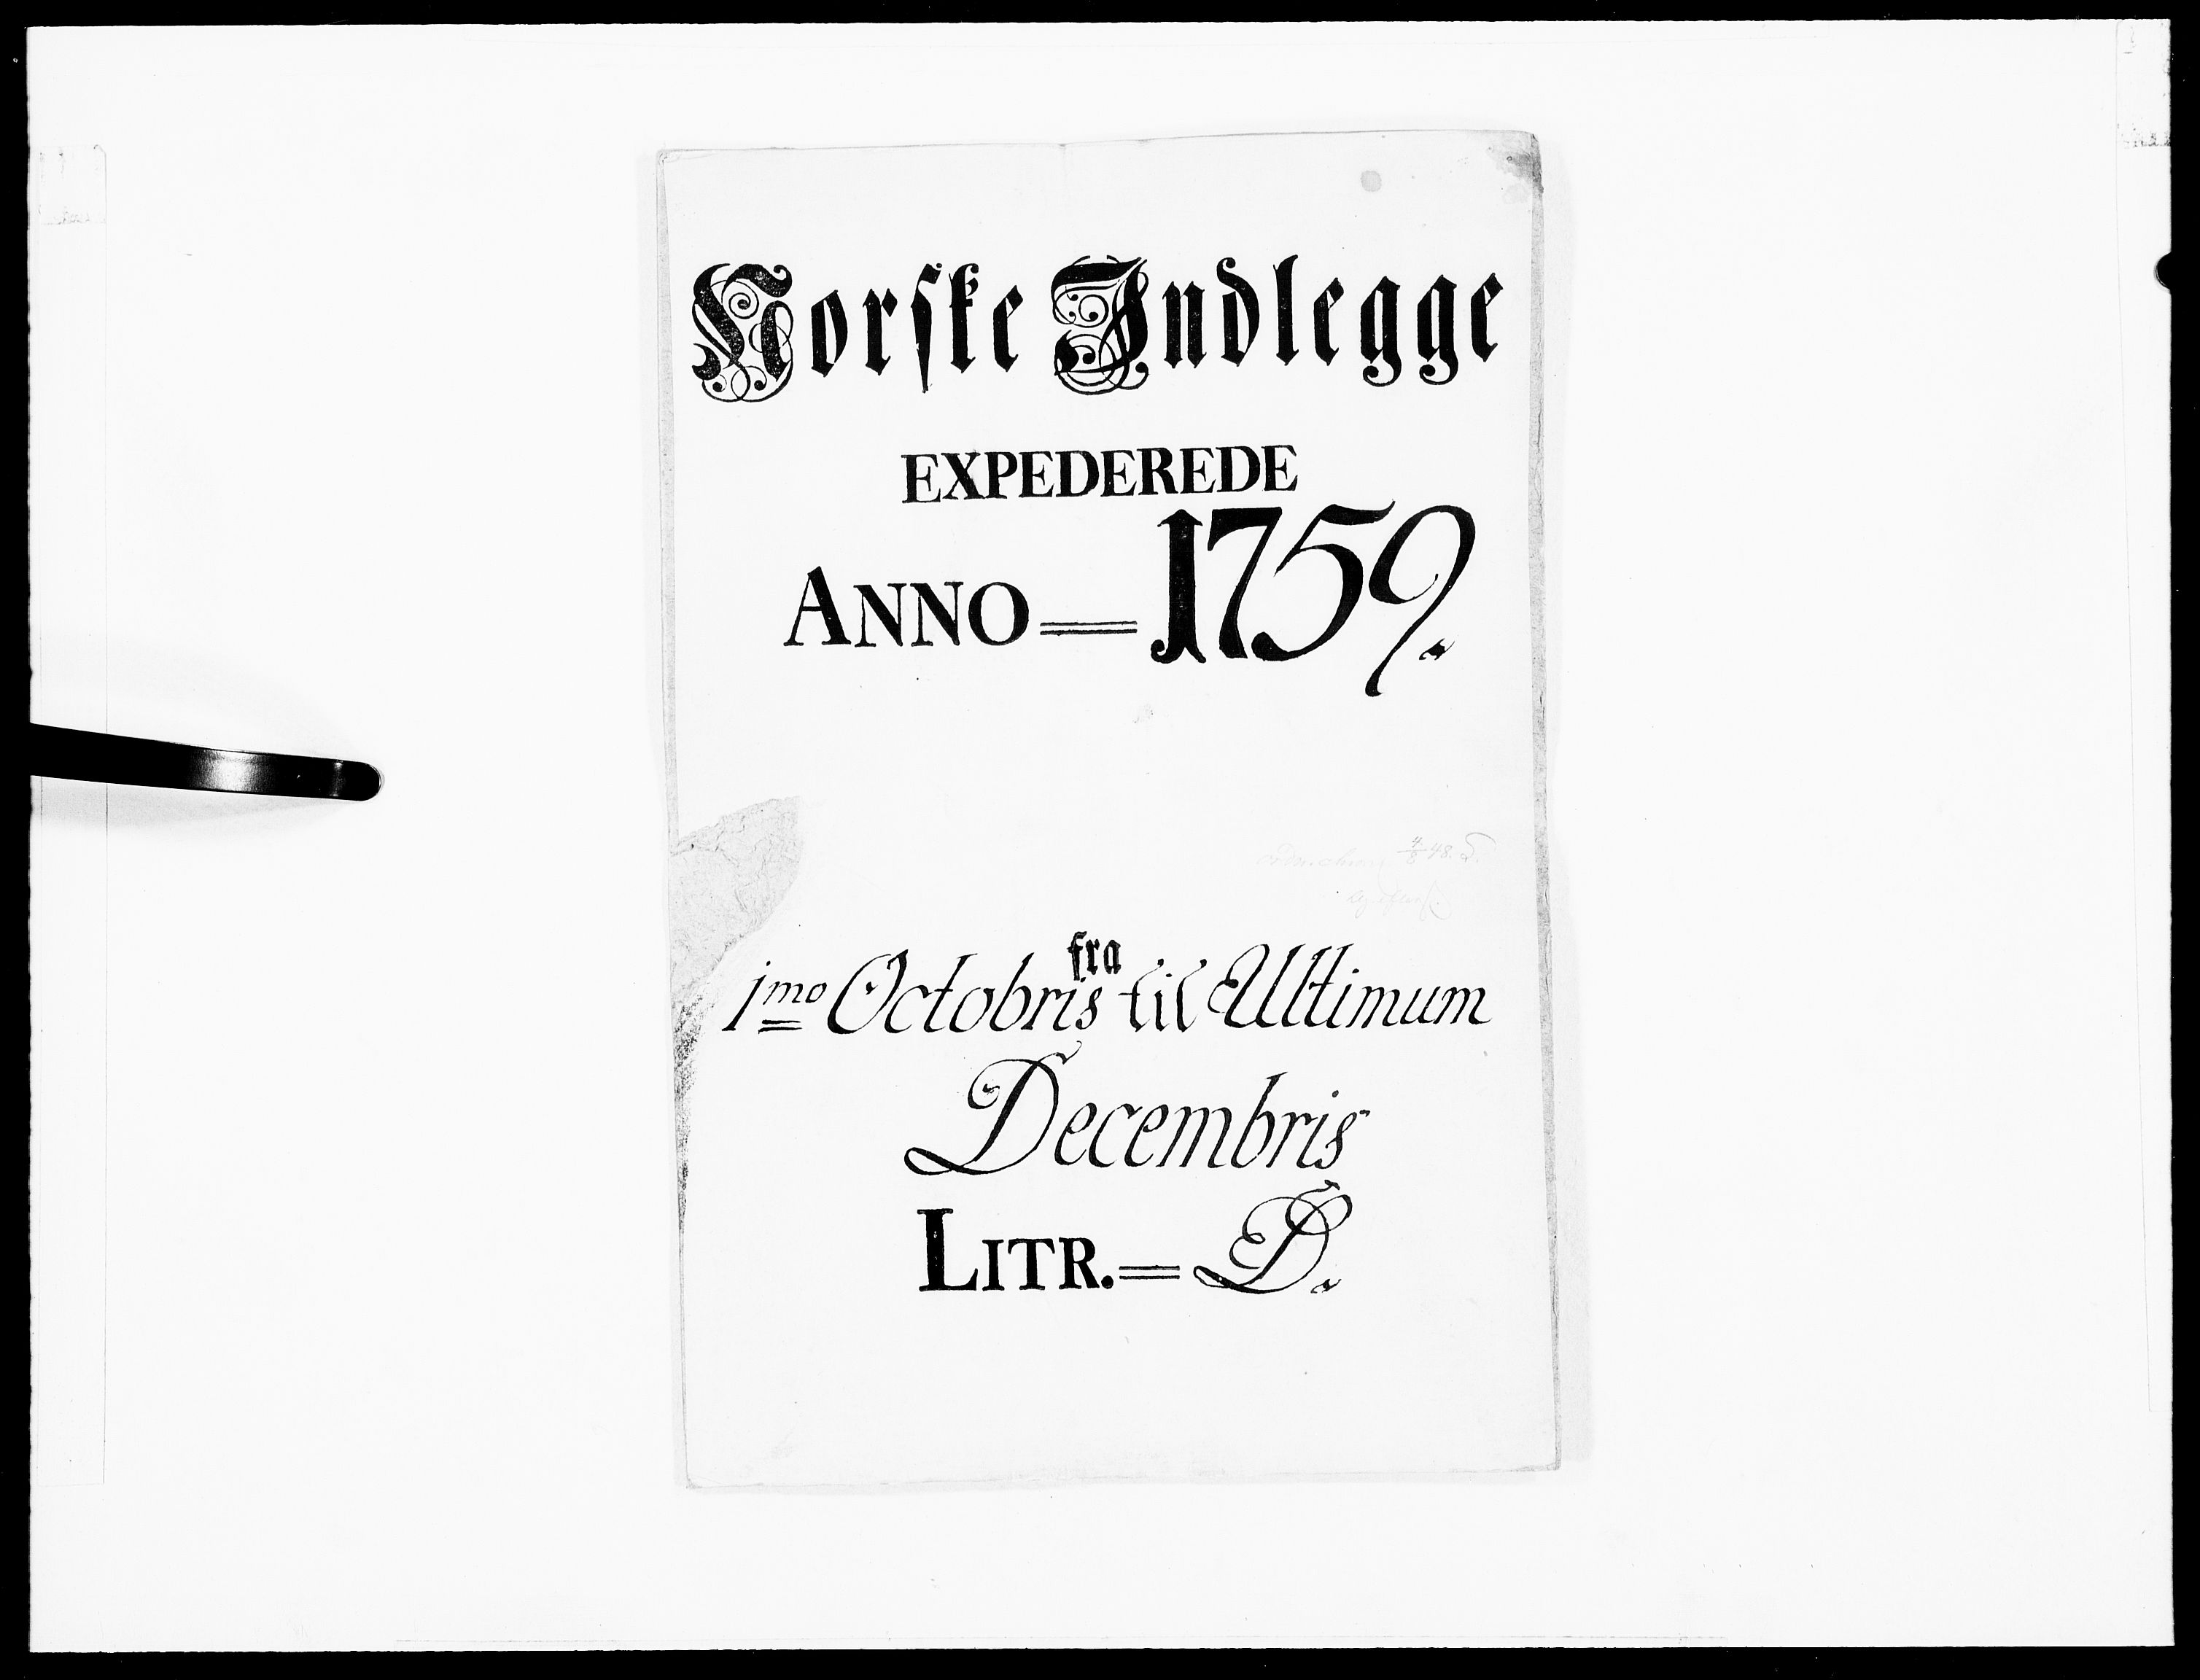 Norske Indlegge
EXPEDEREDE
ANNO = 1759.
fra
1mo Octobris til Ultimum
Decembris
LITR. = D.